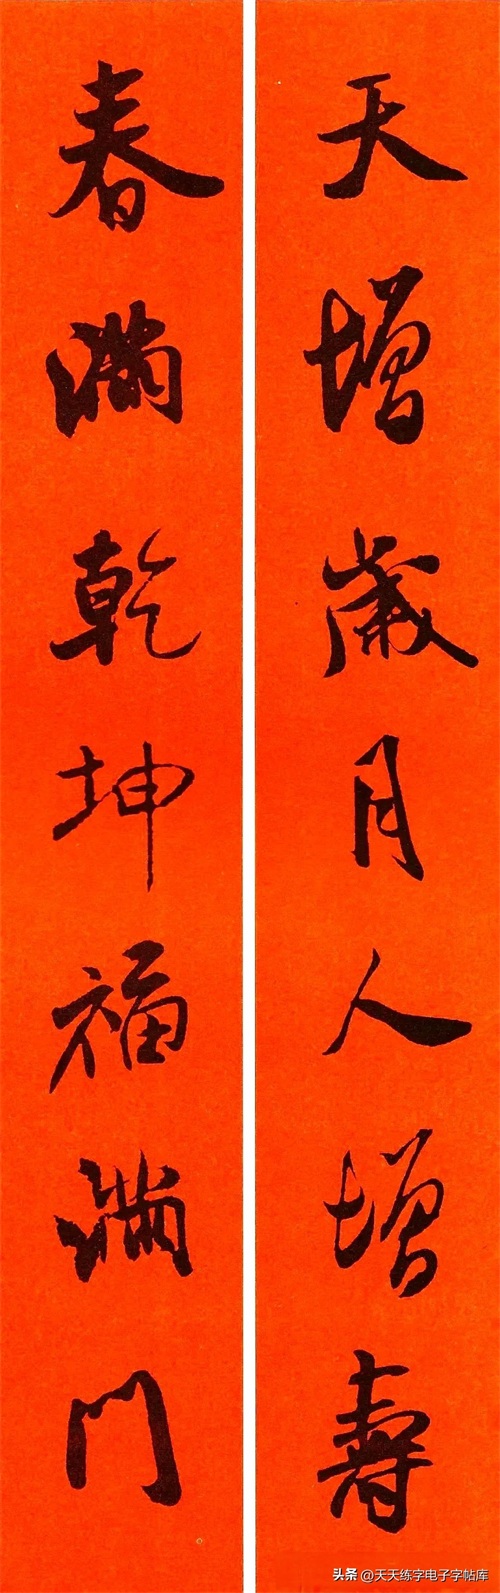 天增歲月人增壽
春滿乾坤福滿門
头条 @天天练字电子字帖库